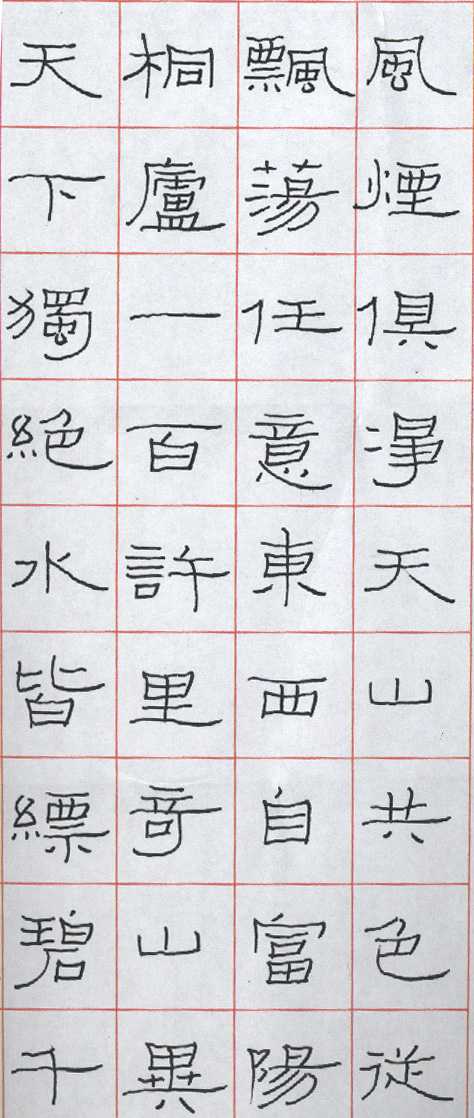 風煙俱淨天山共色従
飄蕩任意東西自富陽
桐廬一百許里竒山異
天下獨絶水皆縹碧千